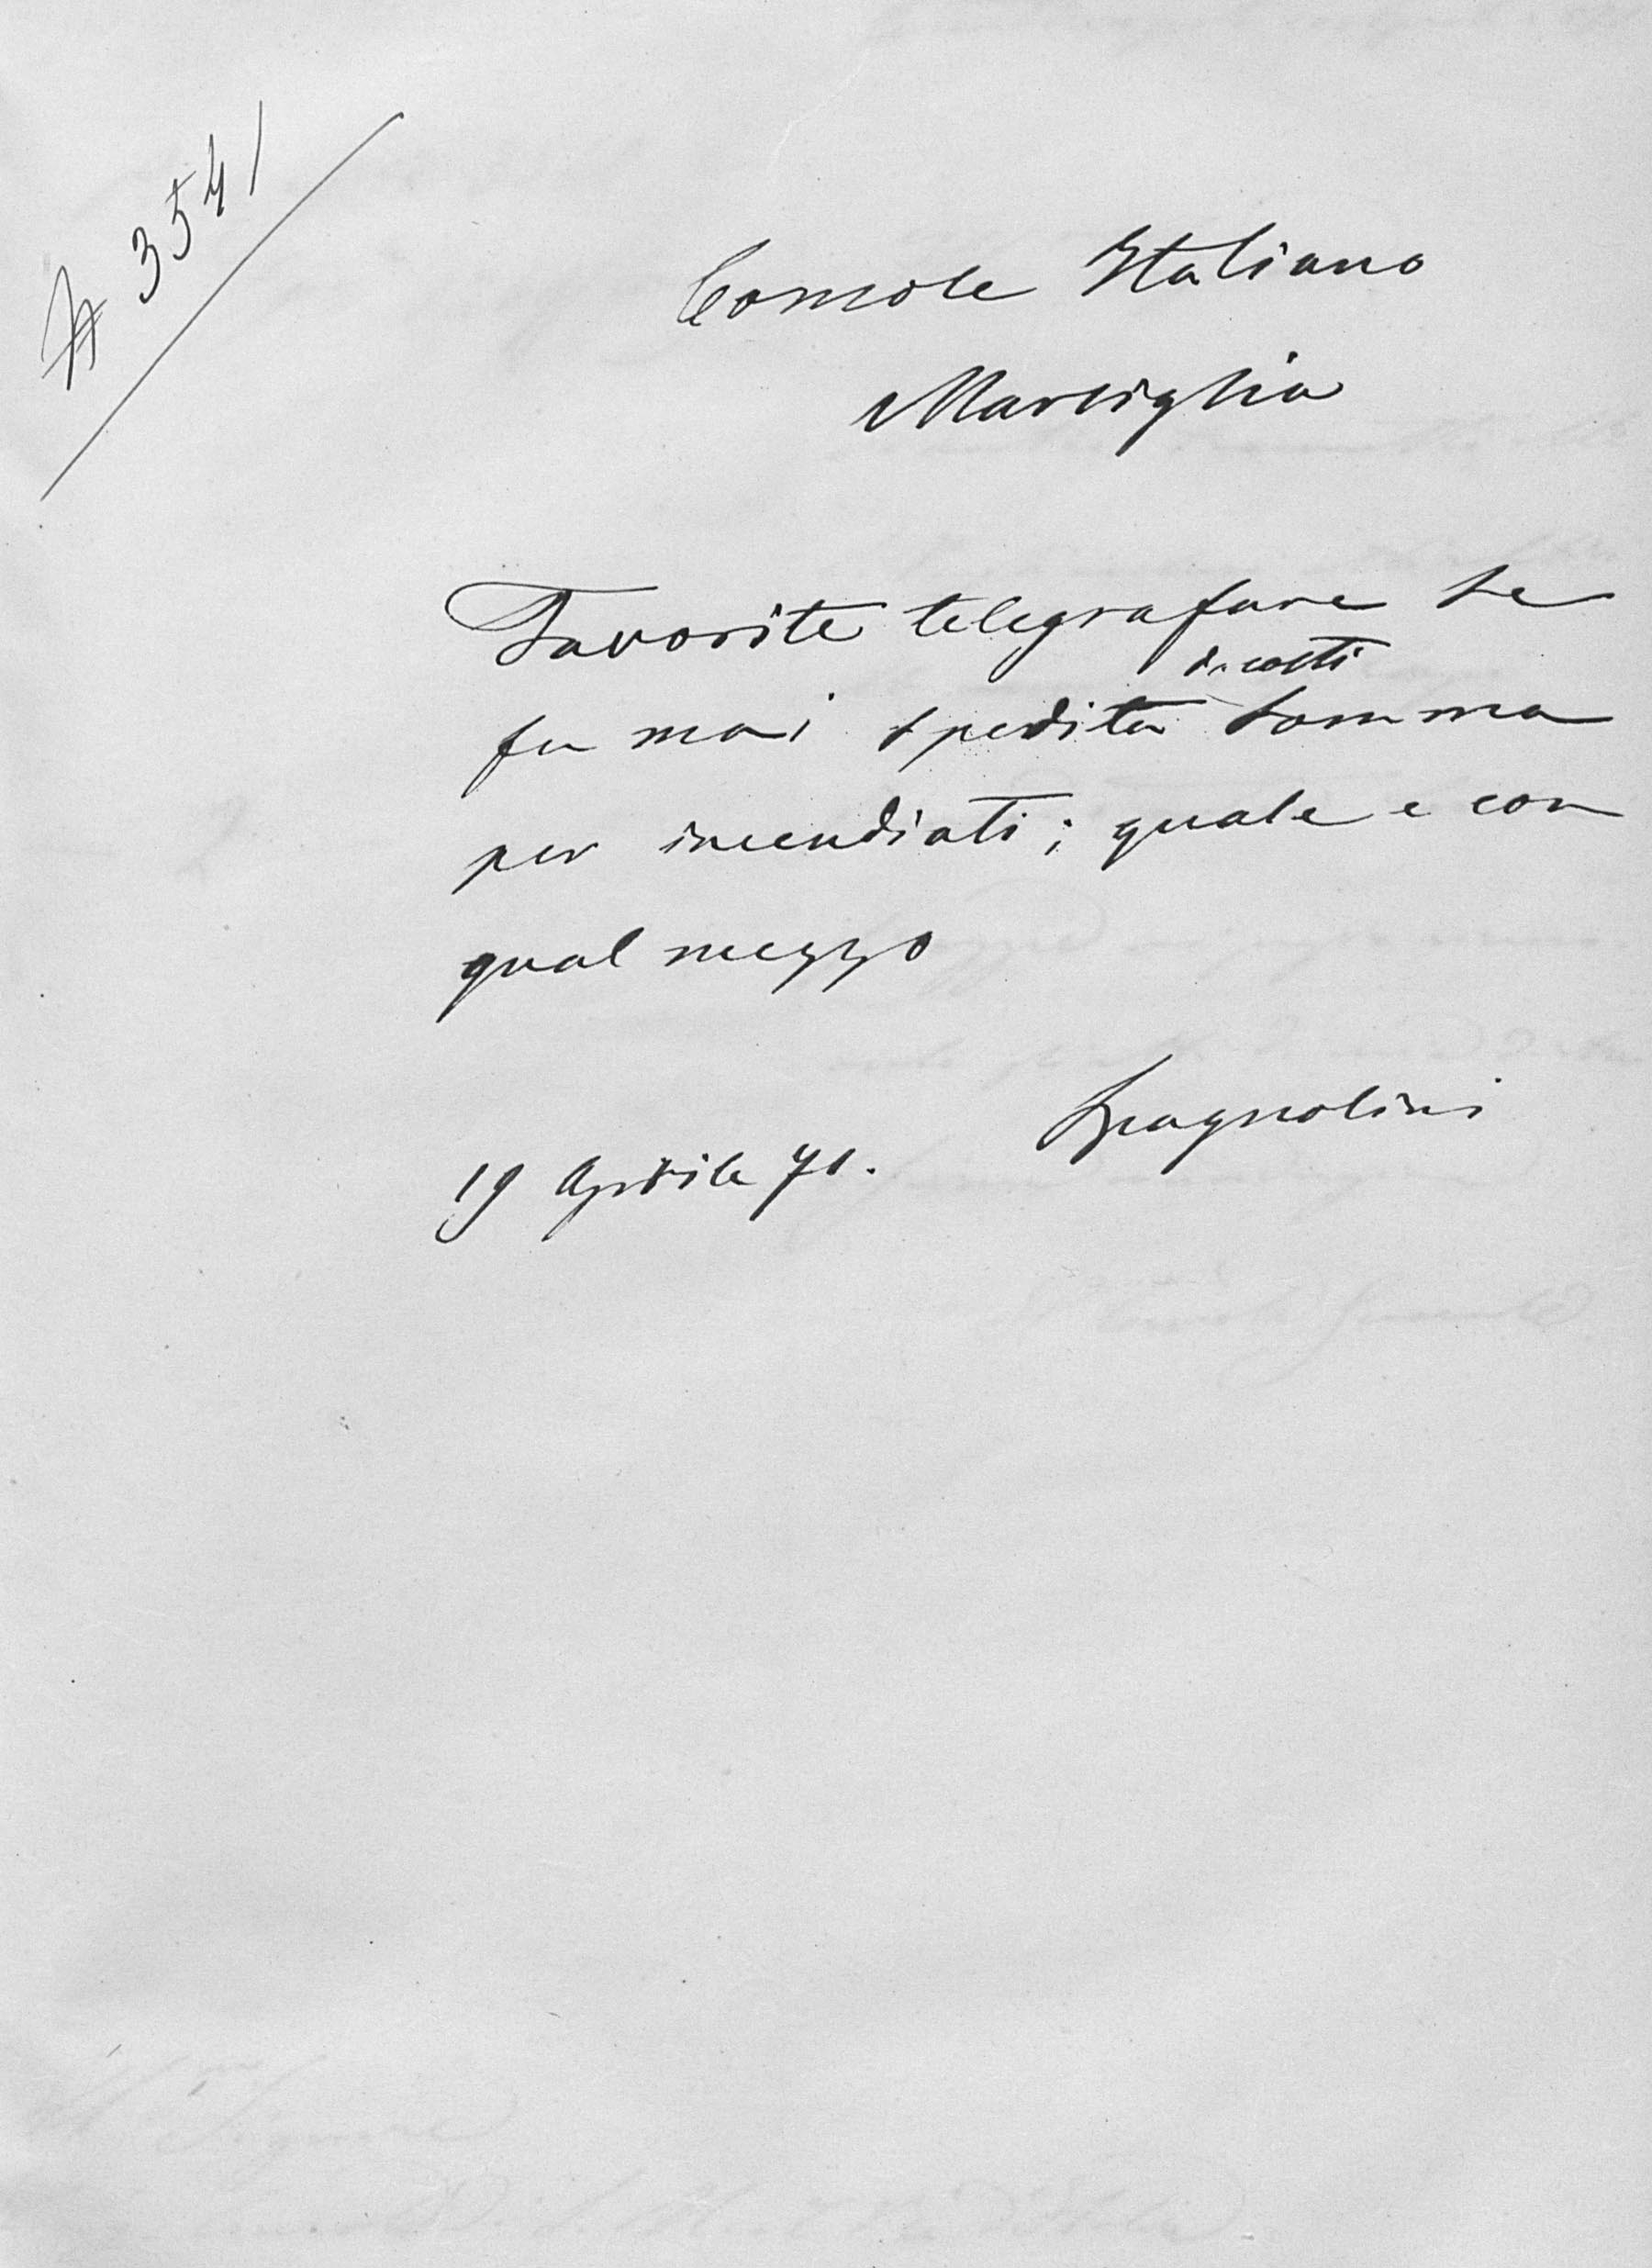 # 3541
Console Italiano
Marsiglia
Favorite telegrafare se
da costì
fu mai spedita somma
per incendiati; quale e con
qual mezzo
Spagnolini
19 Aprile 71.